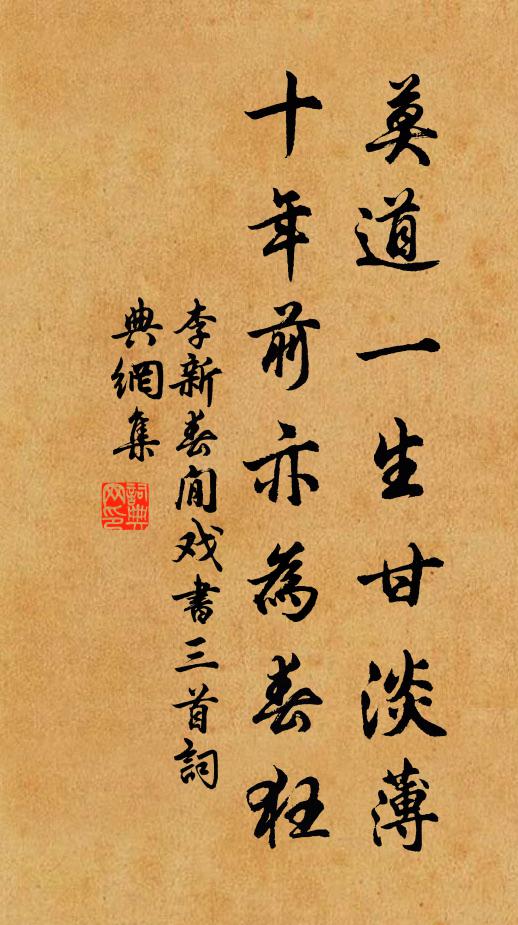 莫道一生甘淡薄
十年前亦為春狂
李新春閒戏書三首詞
典網集
詞典
网印